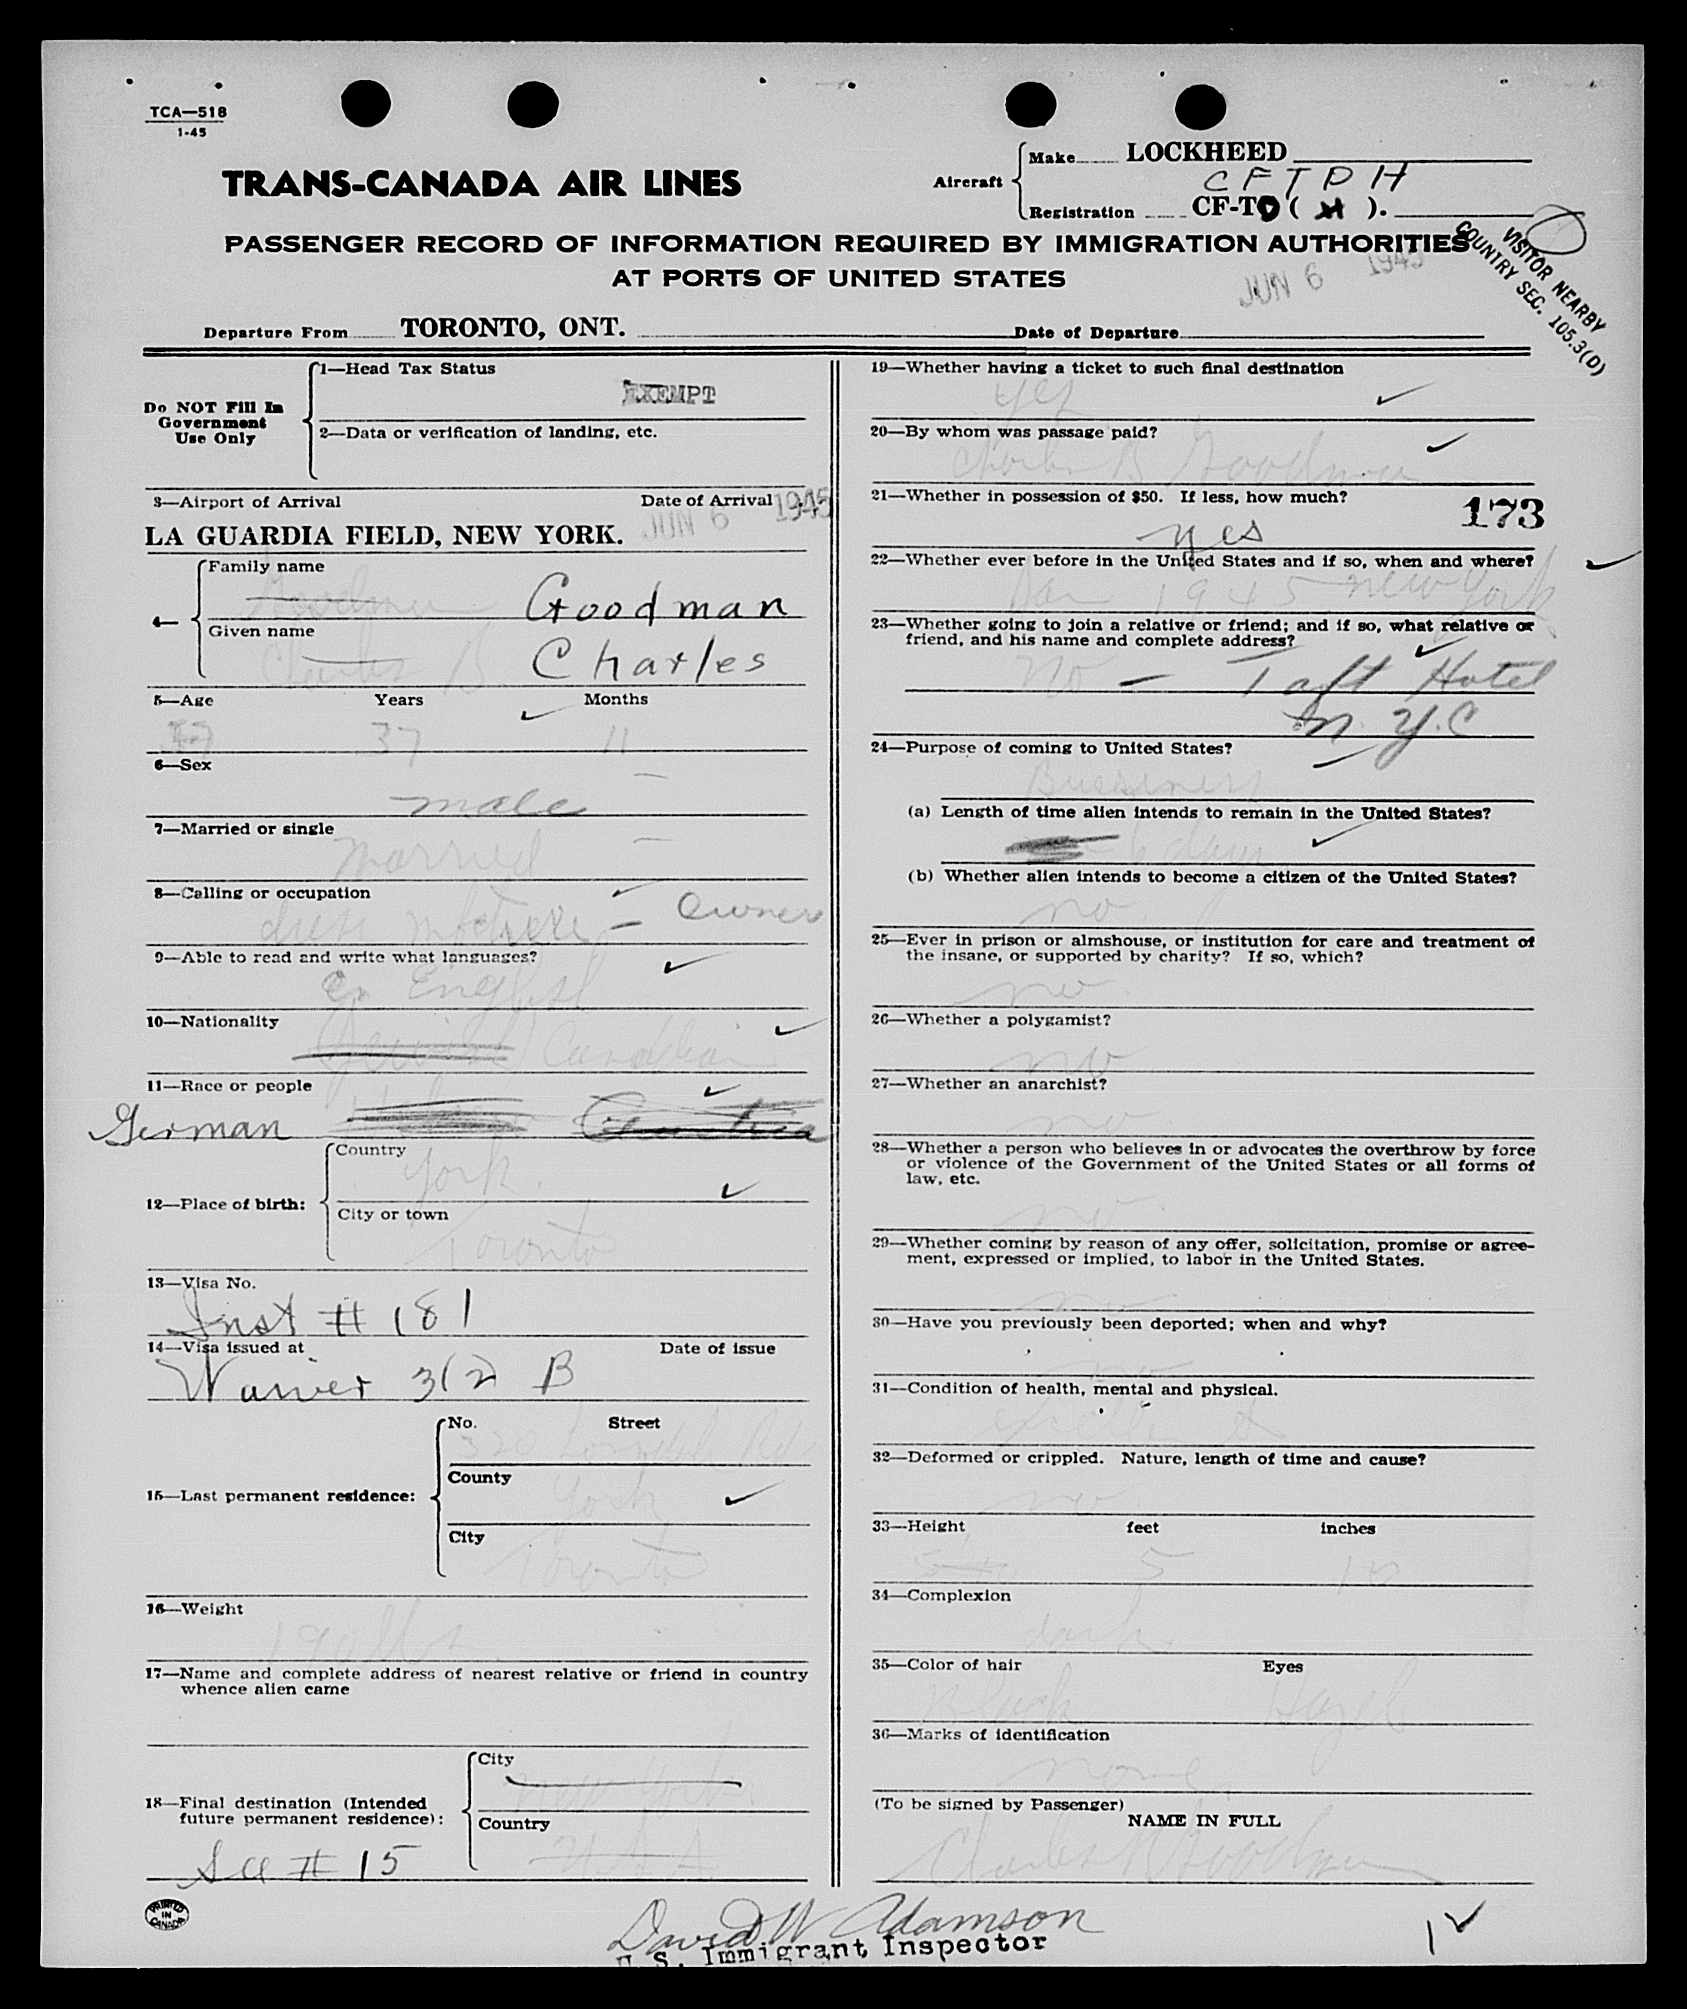 TCA—518
1-45
TRANS-CANADA AIR LINES
Aircraft
Make LOCKHEED
C F T D H
Registration CF-TD ( H ).
PASSENGER RECORD OF INFORMATION REQUIRED BY IMMIGRATION AUTHORITIES
AT PORTS OF UNITED STATES
JUN 6 1945
VISITOR NEARBY
COUNTRY SEC. 105.3(D)
Departure From TORONTO, ONT. Date of Departure
Do NOT Fill In
Government
Use Only
1—Head Tax Status
EXEMPT
2—Data or verification of landing, etc.
3—Airport of Arrival Date of Arrival
JUN 6 1945
LA GUARDIA FIELD, NEW YORK.
4—
Family name
Goodman Goodman
Given name
Charles B Charles
5—Age Years Months
37 11
6—Sex
male
7—Married or single
Married
8—Calling or occupation
dress Owner
9—Able to read and write what languages?
English
10—Nationality
Jewish Canadian
11—Race or people
German
12—Place of birth:
Country
York
City or town
Toronto
13—Visa No.
Inst # 181
14—Visa issued at Date of issue
Waiver 312 B
15—Last permanent residence:
No. Street
320 Rd
County
York
City
Toronto
16—Weight
190 lbs
17—Name and complete address of nearest relative or friend in country
whence alien came
18—Final destination (Intended
future permanent residence):
City
New York
Country
U S A
See # 15
PRINTED
IN
CANADA
19—Whether having a ticket to such final destination
yes
20—By whom was passage paid?
Charles B Goodman
21—Whether in possession of $50. If less, how much?
173
yes
22—Whether ever before in the United States and if so, when and where?
Jan 1945 New York
23—Whether going to join a relative or friend; and if so, what relative or
friend, and his name and complete address?
No — Taft Hotel
N. Y. C
24—Purpose of coming to United States?
Bussiness
(a) Length of time alien intends to remain in the United States?
6 days
(b) Whether alien intends to become a citizen of the United States?
no
25—Ever in prison or almshouse, or institution for care and treatment of
the insane, or supported by charity? If so, which?
no
26—Whether a polygamist?
no
27—Whether an anarchist?
no
28—Whether a person who believes in or advocates the overthrow by force
or violence of the Government of the United States or all forms of
law, etc.
no
29—Whether coming by reason of any offer, solicitation, promise or agree-
ment, expressed or implied, to labor in the United States.
no
30—Have you previously been deported; when and why?
no
31—Condition of health, mental and physical.
32—Deformed or crippled. Nature, length of time and cause?
no
33—Height feet inches
5 10
34—Complexion
dark
35—Color of hair Eyes
Black Hazel
36—Marks of identification
none
(To be signed by Passenger)
NAME IN FULL
Charles B Goodman
David W Adamson
U. S. Immigrant Inspector